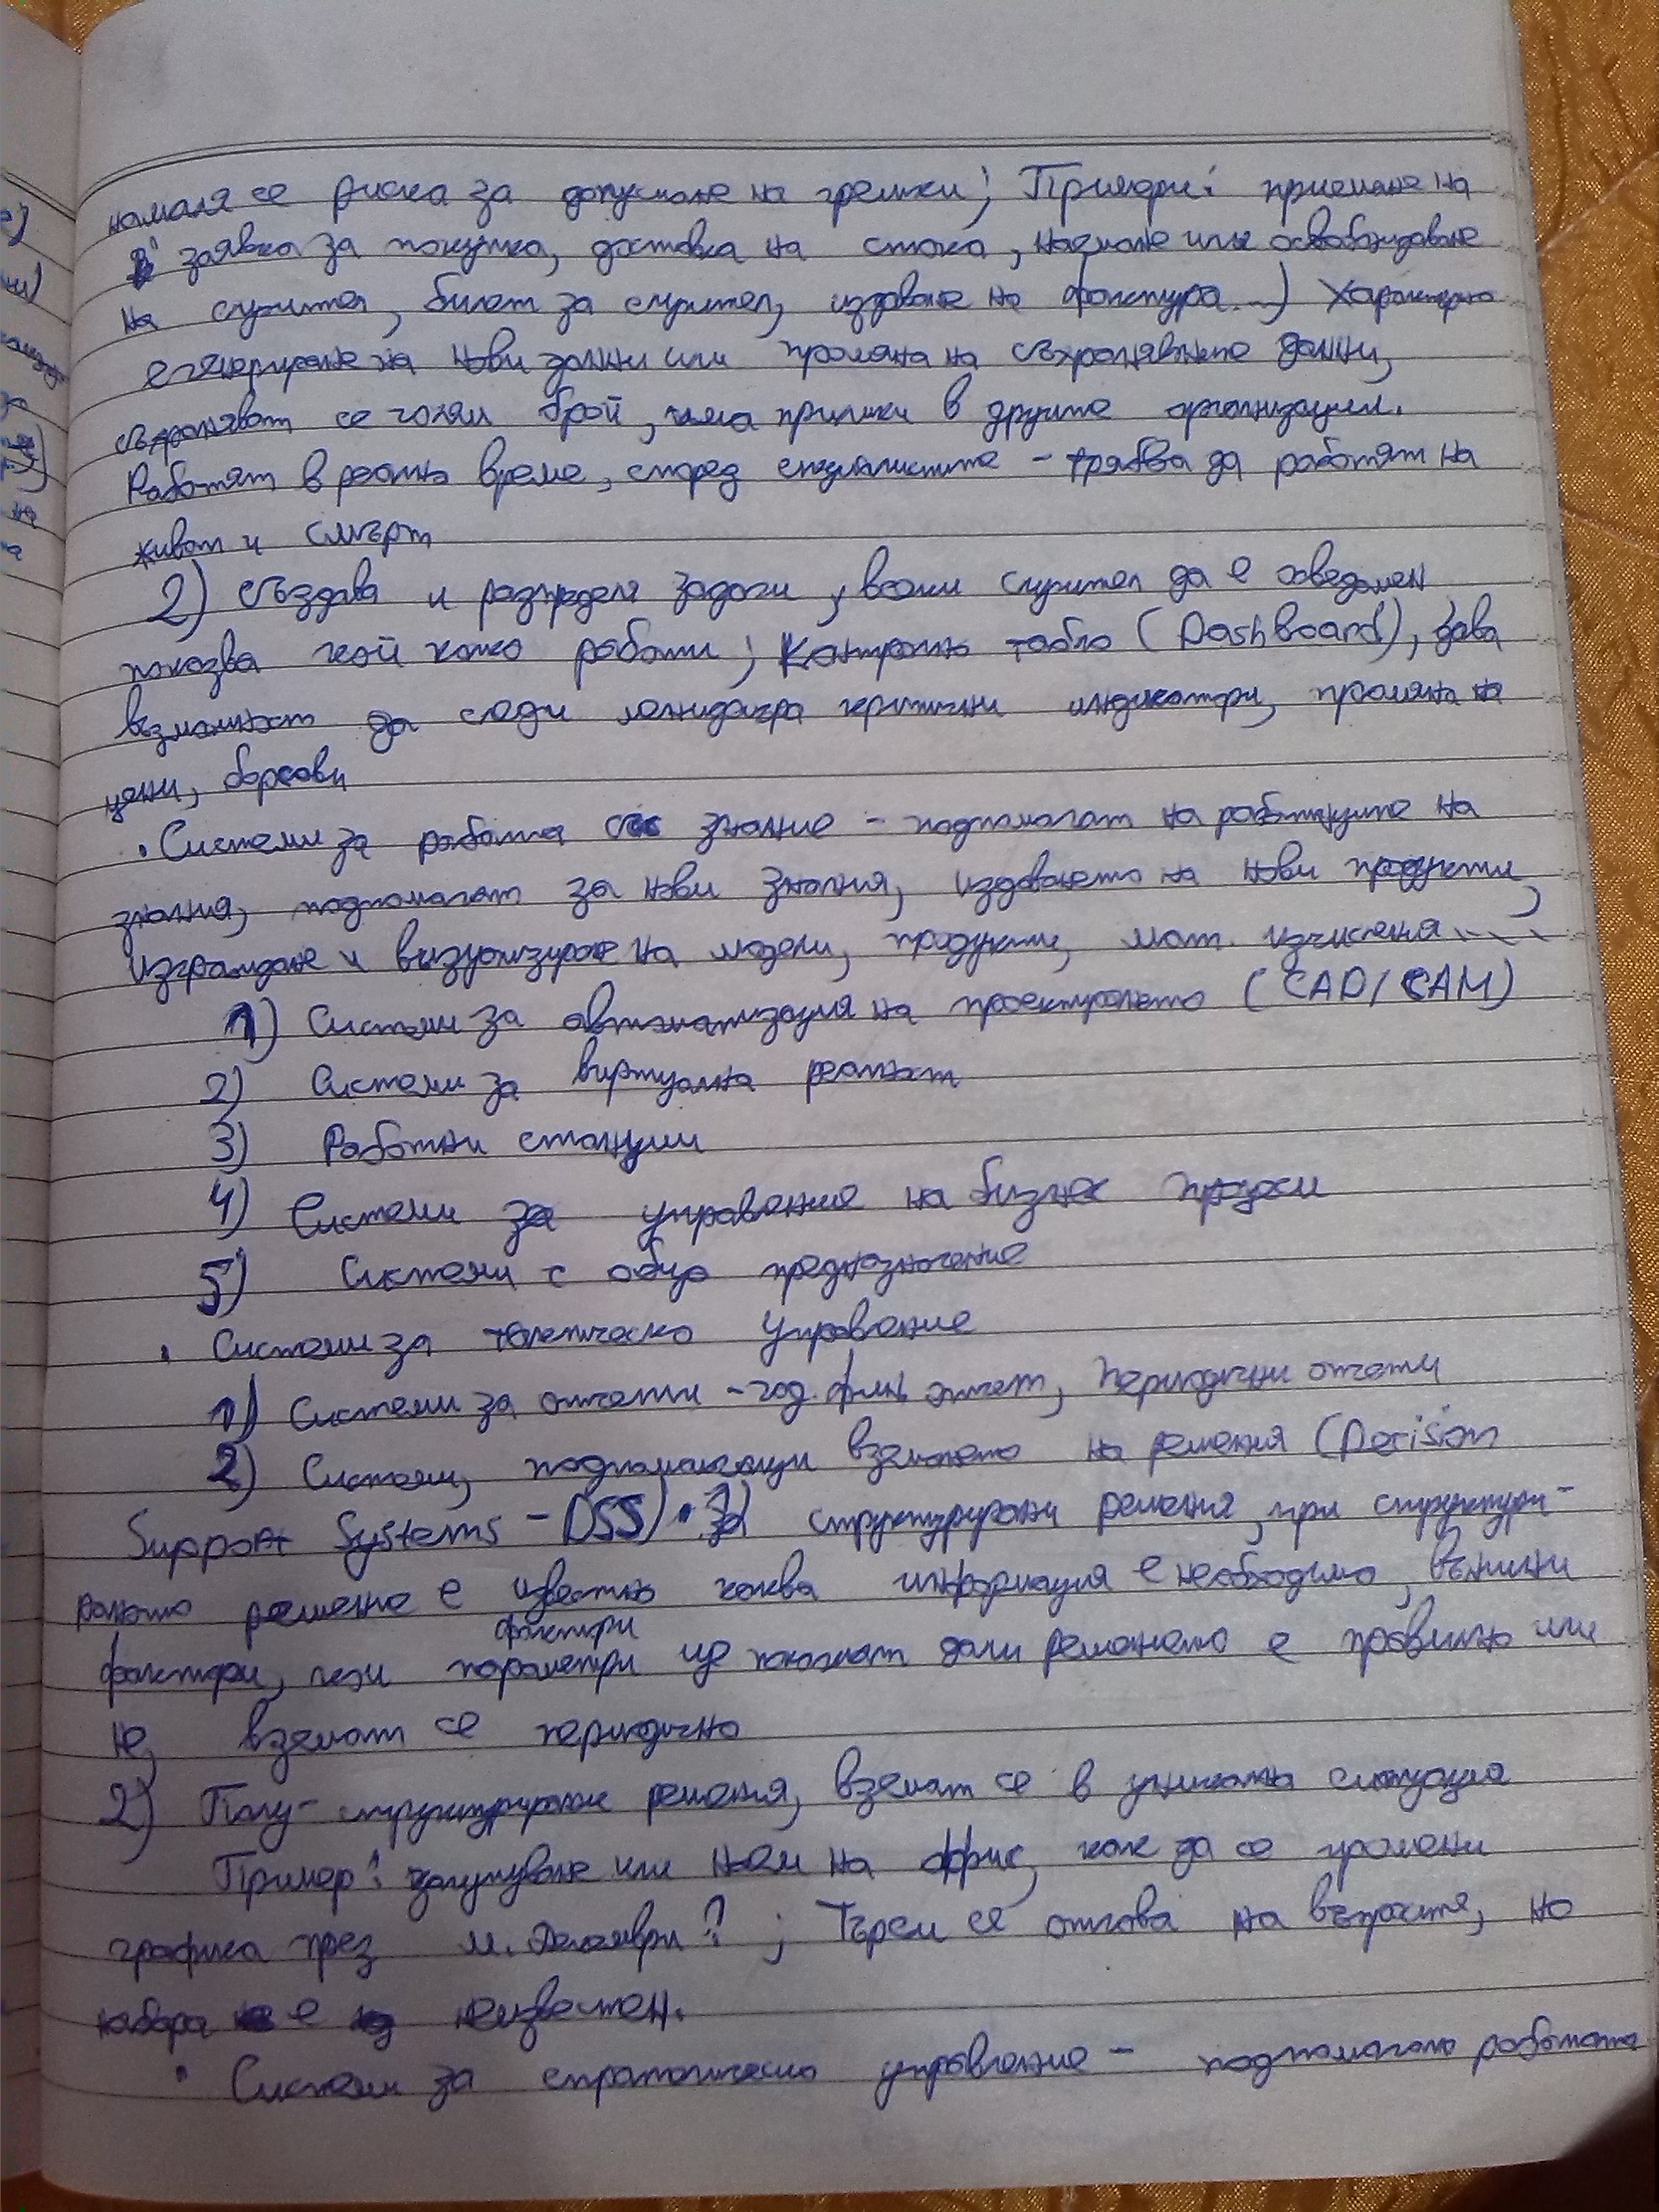 намаля се риска за допускане на грешки; Примери: приемане на
заявка за покупка, доставка на стока, наемане или освобождаване
на служител, билет за служител, издаване на фактура...) Характерно
е генериране на нови данни или промяна на съхраняваните данни,
съхраняват се голям брой, има прилики в другите организации.
Работят в реално време, според специалистите - трябва да работят на
живот и смърт
2) Създава и разпределя задачи, всеки служител да е осведомен
показва кой како работи; Контролно табло (DashBoard), дава
възможност да следи мениджъра критични индикатори, промяна на
цени, борсови
• Системи за работа със знание - подпомагат на работниците на
знания, подпомагат за нови знания, издаването на нови продукти,
изграждане и визуализиране на модели, продукти, мат. изчисления....
1) Системи за автоматизация на проектирането (CAD/CAM)
2) Системи за виртуална реалност
3) Работни станции
4) Системи за управление на бизнес процеси
5) Системи с общо предназначение
• Системи за тактическо управление
1) Системи за отчети - год. фин. отчет, периодични отчети
2) Системи, подпомагащи вземането на решения (Decision
Support Systems - DSS) • 1) структурирани решения, при структури-
раното решение е известно каква информация е необходима, външни
фактори
фактори, тези параметри ще покажат дали решението е правилно или
не, вземат се периодично
2) Полу-структурирани решения, вземат се в уникална ситуация
Пример: закупуване или наем на офис, как да се промени
графика през м. Декември?; Търси се отговa на въпросите, но
набора е неизвестен.
• Системи за стратегическо управление - подпомагане работата